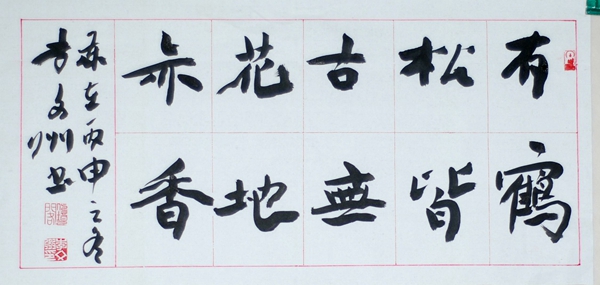 有鶴
松皆
古無
花地
亦香
歲在丙申之冬
文州书